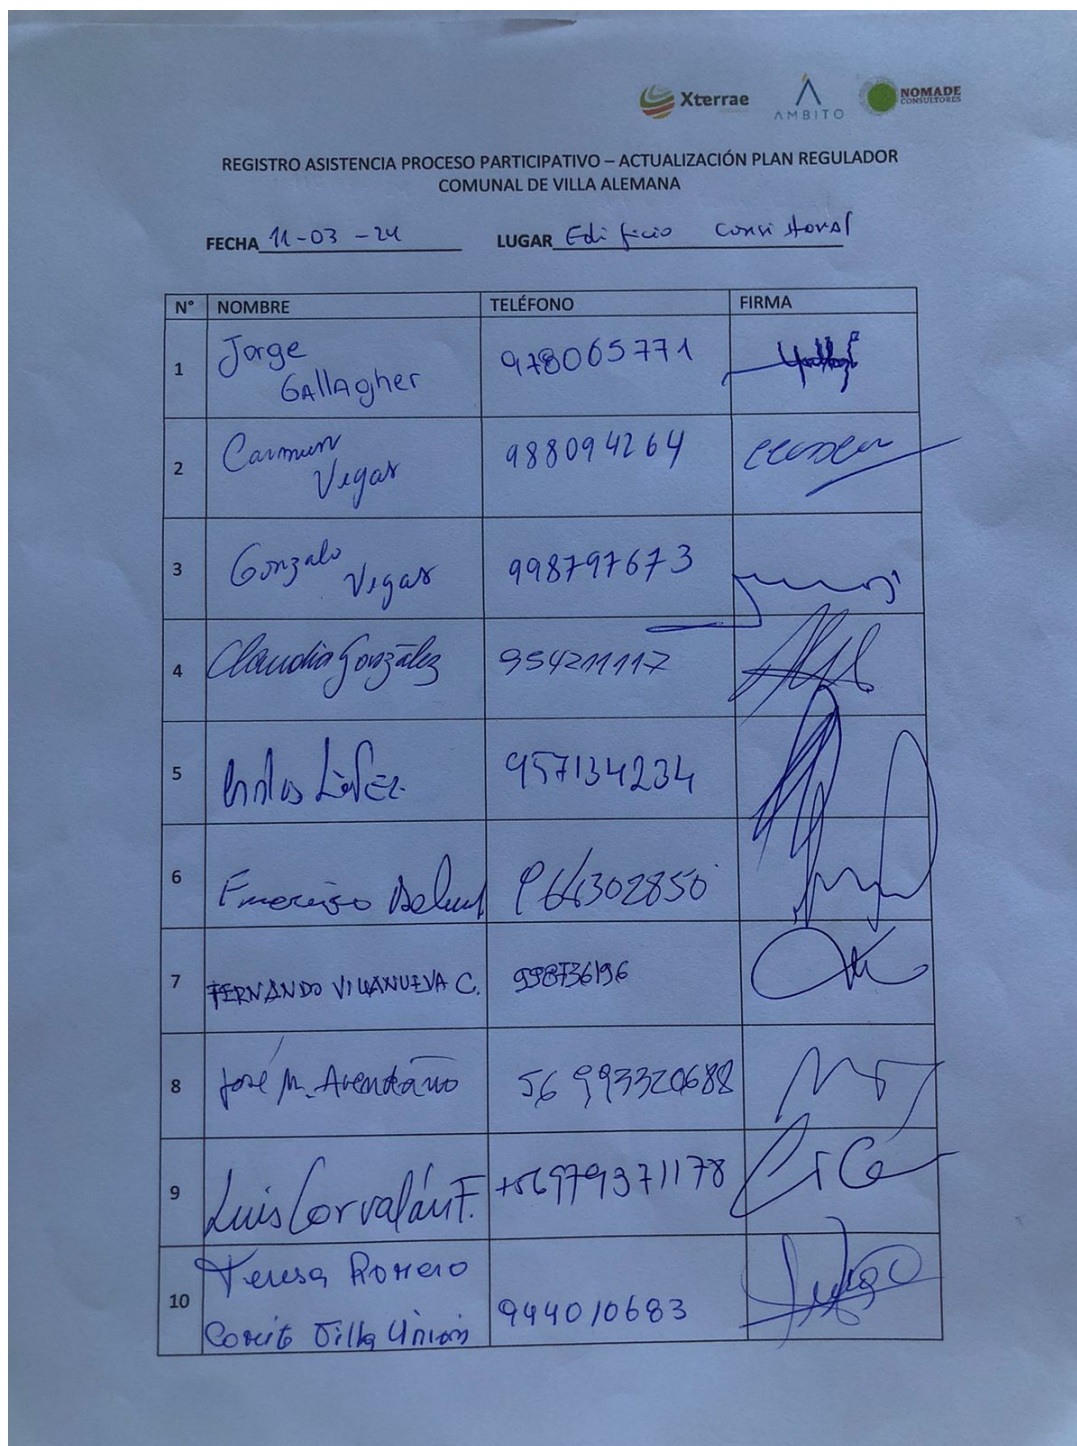 Xterrae
AMBITO
NOMADE
CONSULTORES
REGISTRO ASISTENCIA PROCESO PARTICIPATIVO – ACTUALIZACIÓN PLAN REGULADOR
COMUNAL DE VILLA ALEMANA
FECHA 11-03-24 LUGAR Edificio Consistorial
N° NOMBRE TELÉFONO FIRMA
1 Jorge 978065771
Gallagher
2 Carmen 988094264
Vegas
3 Gonzalo 998797673
Vegas
4 Claudia González 954211117
5 López 957134234
6 964302850
7 FERNANDO VILLANUEVA C. 998736196
8 José M. Avendaño 56 993320688
9 Luis Corvalán F. +56979371178
10 Teresa Romero 944010683
Comité Villa Unión